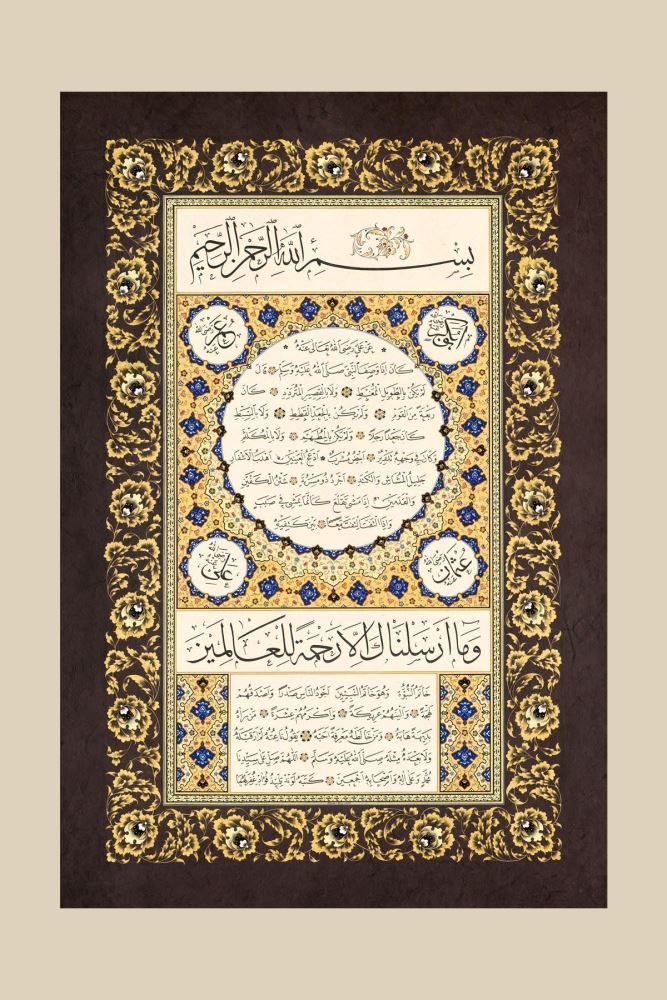 بسم الله الرحمن الرحيم
أبو بكر رضي الله عنه
عمر رضي الله عنه
عن علي رضي الله تعالى عنه
كان إذا وصف النبي صلى الله عليه وسلم قال
لم يكن بالطويل الممغط ولا بالقصير المتردد كان
ربعة من القوم ولم يكن بالجعد القطط ولا بالسبط
كان جعدا رجلا ولم يكن بالمطهم ولا بالمكلثم
وكان في وجهه تدوير أبيض مشرب أدعج العينين أهدب الأشفار
جليل المشاش والكتد أجرد ذو مسربة شثن الكفين
والقدمين إذا مشى تقلع كأنما يمشي في صبب
وإذا التفت التفت معا بين كتفيه
عثمان رضي الله عنه
علي رضي الله عنه
وما أرسلناك إلا رحمة للعالمين
خاتم النبوة وهو خاتم النبيين أجود الناس صدرا وأصدقهم
لهجة وألينهم عريكة وأكرمهم عشرة من رآه
بديهة هابه ومن خالطه معرفة أحبه يقول ناعته لم أر قبله
ولا بعده مثله صلى الله عليه وسلم اللهم صل على سيدنا
محمد وعلى آله وأصحابه أجمعين كتبه